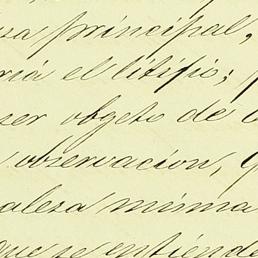 principal,
ria el litijio;
ser objeto de
observacion,
aleza misma
que se entiende